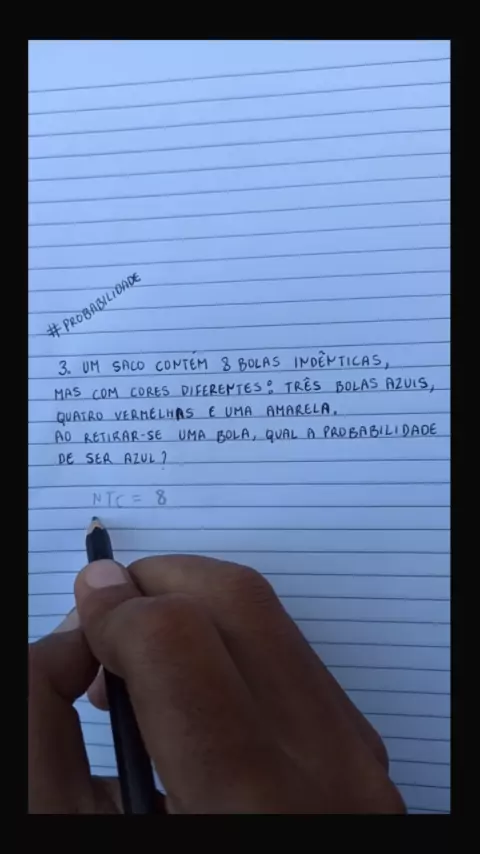 #PROBABILIDADE
3. UM SACO CONTÉM 8 BOLAS INDÊNTICAS,
MAS COM CORES DIFERENTES: TRÊS BOLAS AZUIS,
QUATRO VERMELHAS E UMA AMARELA.
AO RETIRAR-SE UMA BOLA, QUAL A PROBABILIDADE
DE SER AZUL?
NTC = 8